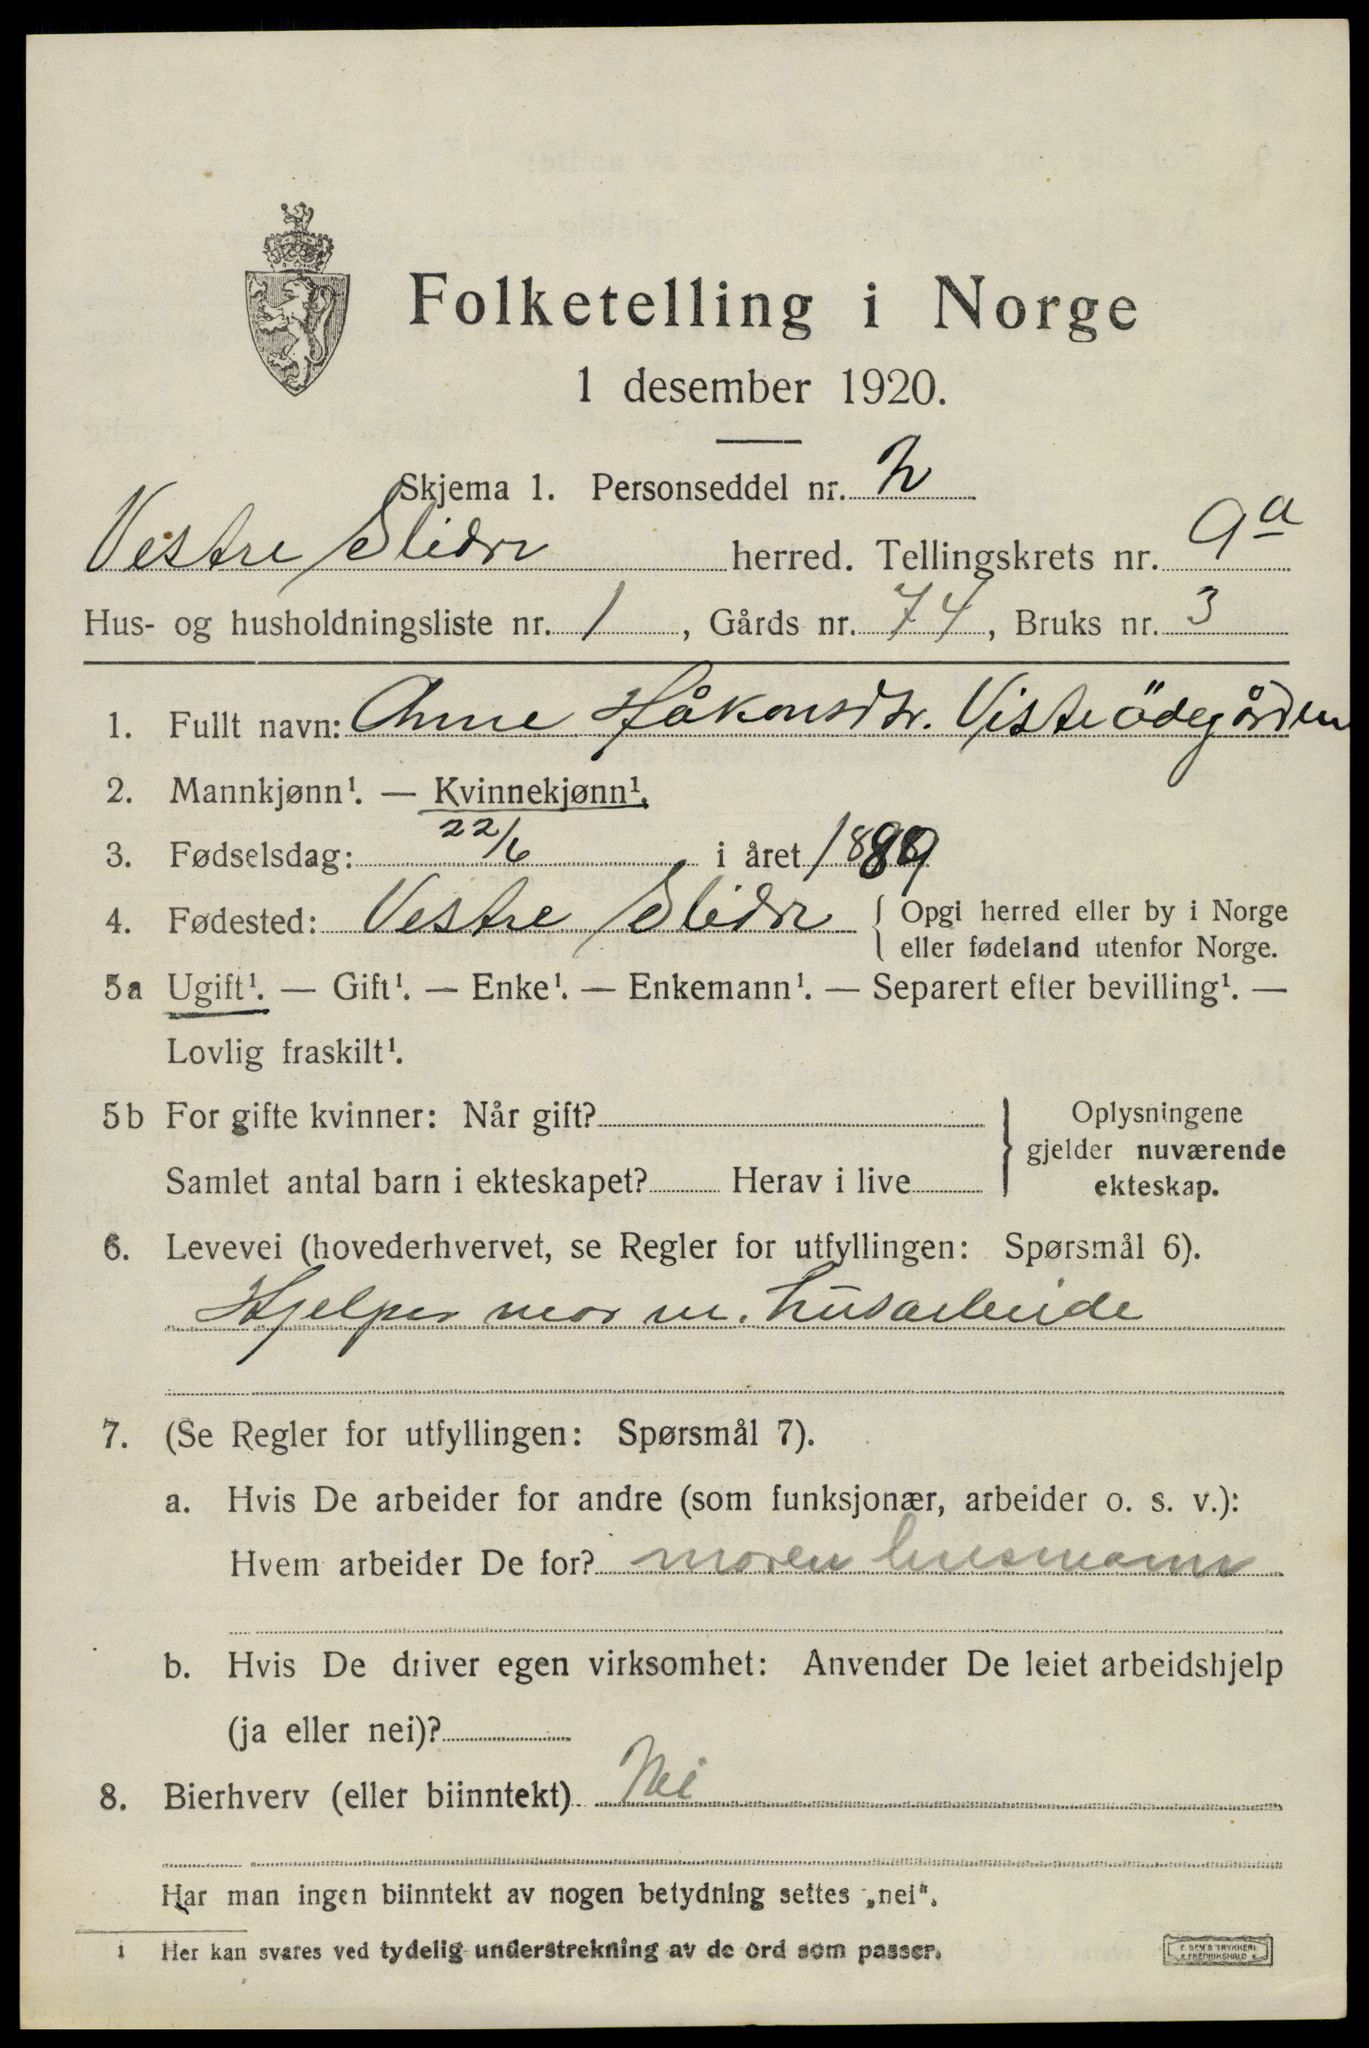 Folketelling i Norge
1 desember 1920.
Skjema 1. Personseddel nr. 2
Vestre Slidre herred. Tellingskrets nr. 9a
Hus- og husholdningsliste nr. 1, Gårds nr. 74, Bruks nr. 3
1. Fullt navn: Anne Håkonsdtr. Visteödegården
2. Mannkjønn¹. — Kvinnekjønn¹.
3. Fødselsdag: 22/6 i året 1889
4. Fødested: Vestre Slidre { Opgi herred eller by i Norge
eller fødeland utenfor Norge.
5a Ugift¹. — Gift¹. — Enke¹. — Enkemann¹. — Separert efter bevilling¹. —
Lovlig fraskilt¹.
5b For gifte kvinner: Når gift? } Oplysningene
gjelder nuværende
Samlet antal barn i ekteskapet? Herav i live ekteskap.
6. Levevei (hovederhvervet, se Regler for utfyllingen: Spørsmål 6).
Hjelper mor m. husarbeide
7. (Se Regler for utfyllingen: Spørsmål 7).
a. Hvis De arbeider for andre (som funksjonær, arbeider o. s. v.):
Hvem arbeider De for? moren husmann
b. Hvis De driver egen virksomhet: Anvender De leiet arbeidshjelp
(ja eller nei)?
8. Bierhverv (eller biinntekt) Nei
Har man ingen biinntekt av nogen betydning settes „nei".
1 Her kan svares ved tydelig understrekning av de ord som passer.
E. SEM'S TRYKKERI
FREDRIKSHALD